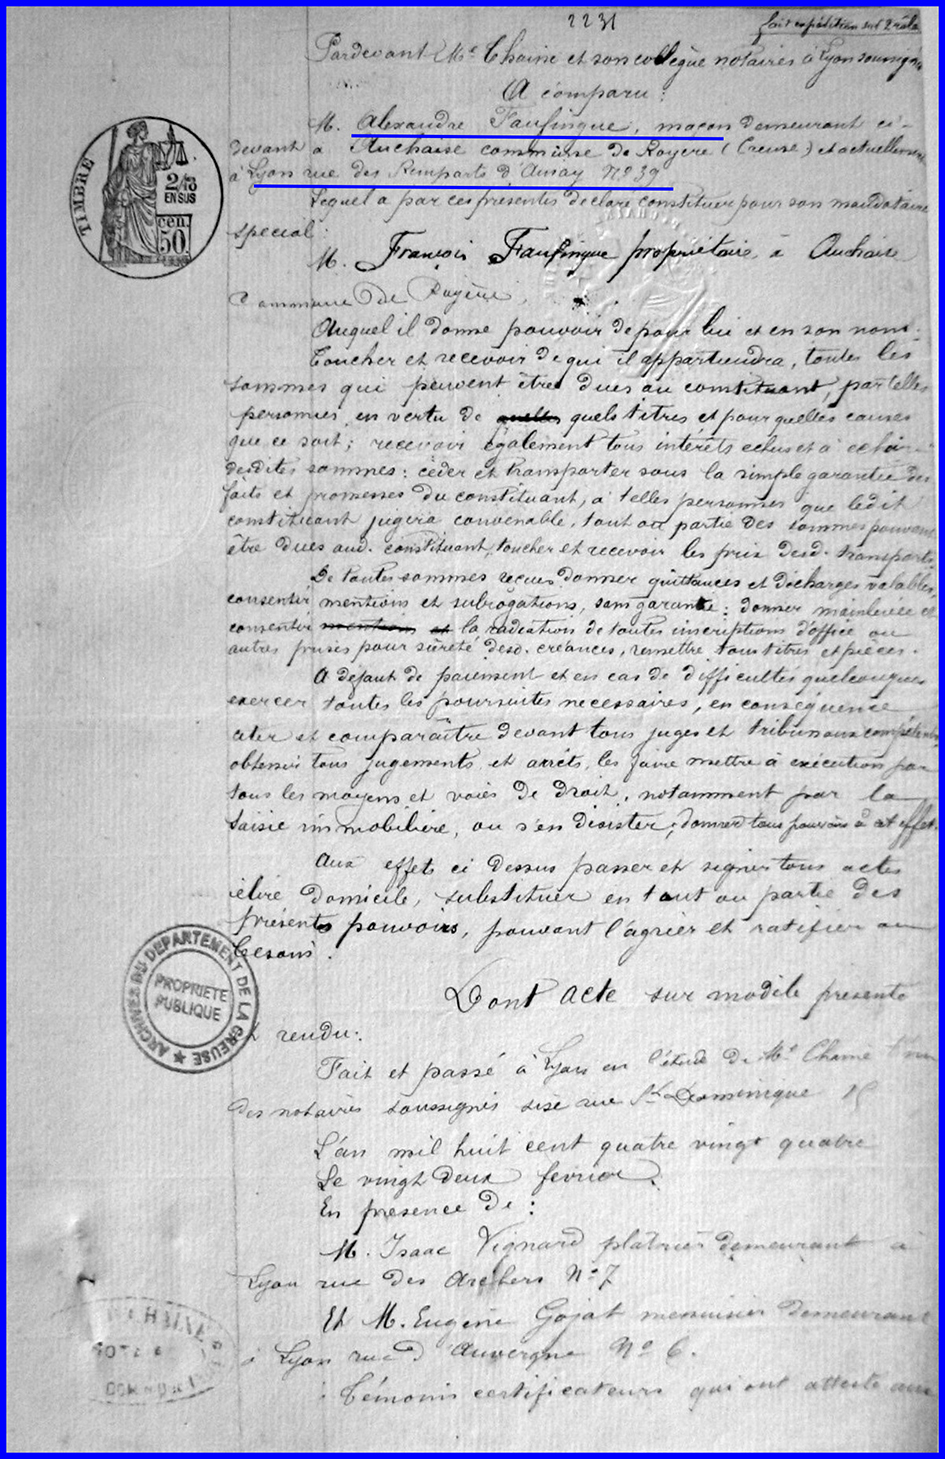 2231
fait expédition sur 2 rôles
Pardevant Me Chaine et son collègue notaires à Lyon soussignés
A comparu :
M. Alexandre Faufingue, maçon demeurant ci-
devant à Auchaise commune de Royère (Creuse) et actuellement
à Lyon rue des Remparts d'Ainay No 39
Lequel a par ces présentes déclaré constituer pour son mandataire
spécial :
M. François Faufingue propriétaire à Auchaise
Commune de Royère
Auquel il donne pouvoir de pour lui et en son nom.
Toucher et recevoir de qui il appartiendra, toutes les
sommes qui peuvent être dues au constituant, par telles
personnes, en vertu de quelles quels titres et pour quelles causes
que ce soit ; recevoir également tous intérêts echus et à echoir
desdites sommes : céder et transporter sous la simple garantie des
faits et promesses du constituant, à telles personnes que ledit
constituant jugera convenable, tout ou partie des sommes pouvant
être dues aud. constituant, toucher et recevoir les prix desd. transports.
De toutes sommes reçues donner quittances et décharges valables,
consentir mentions et subrogations, sans garantie : donner mainlevée et
consentir mentions et la radiation de toutes inscriptions d'office ou
autres prises pour sûreté desd. créances, remettre tous titres et pièces.
A défaut de paiement et en cas de difficultés quelconques
exercer toutes les poursuites necessaires, en conséquence
citer et comparaître devant tous juges et tribunaux compétents
obtenir tous jugements et arrêts, les faire mettre à exécution par
tous les moyens et voies de droit, notamment par la
saisie immobilière, ou s'en désister, donner tous pouvoirs à cet effet.
Aux effets ci dessus passer et signer tous actes
élire domicile, substituer en tout ou partie des
présents pouvoirs, pouvant l'agréer et ratifier au
besoin.
Dont acte sur modèle présenté
et rendu :
Fait et passé à Lyon en l'étude de Me Chaine l'un
des notaires soussignés sise rue St Dominique 15
L'an mil huit cent quatre vingt quatre
Le vingt deux février.
En présence de :
M. Isaac Vignard plâtrier demeurant à
Lyon rue des Archers No 7
Et M. Eugène Gojat menuisier demeurant
à Lyon rue d'Auvergne No 6.
Témoins certificateurs qui ont attesté aux
TIMBRE
2/10
EN SUS
50 cen.
ARCHIVES DU DEPARTEMENT DE LA CREUSE
PROPRIETE
PUBLIQUE